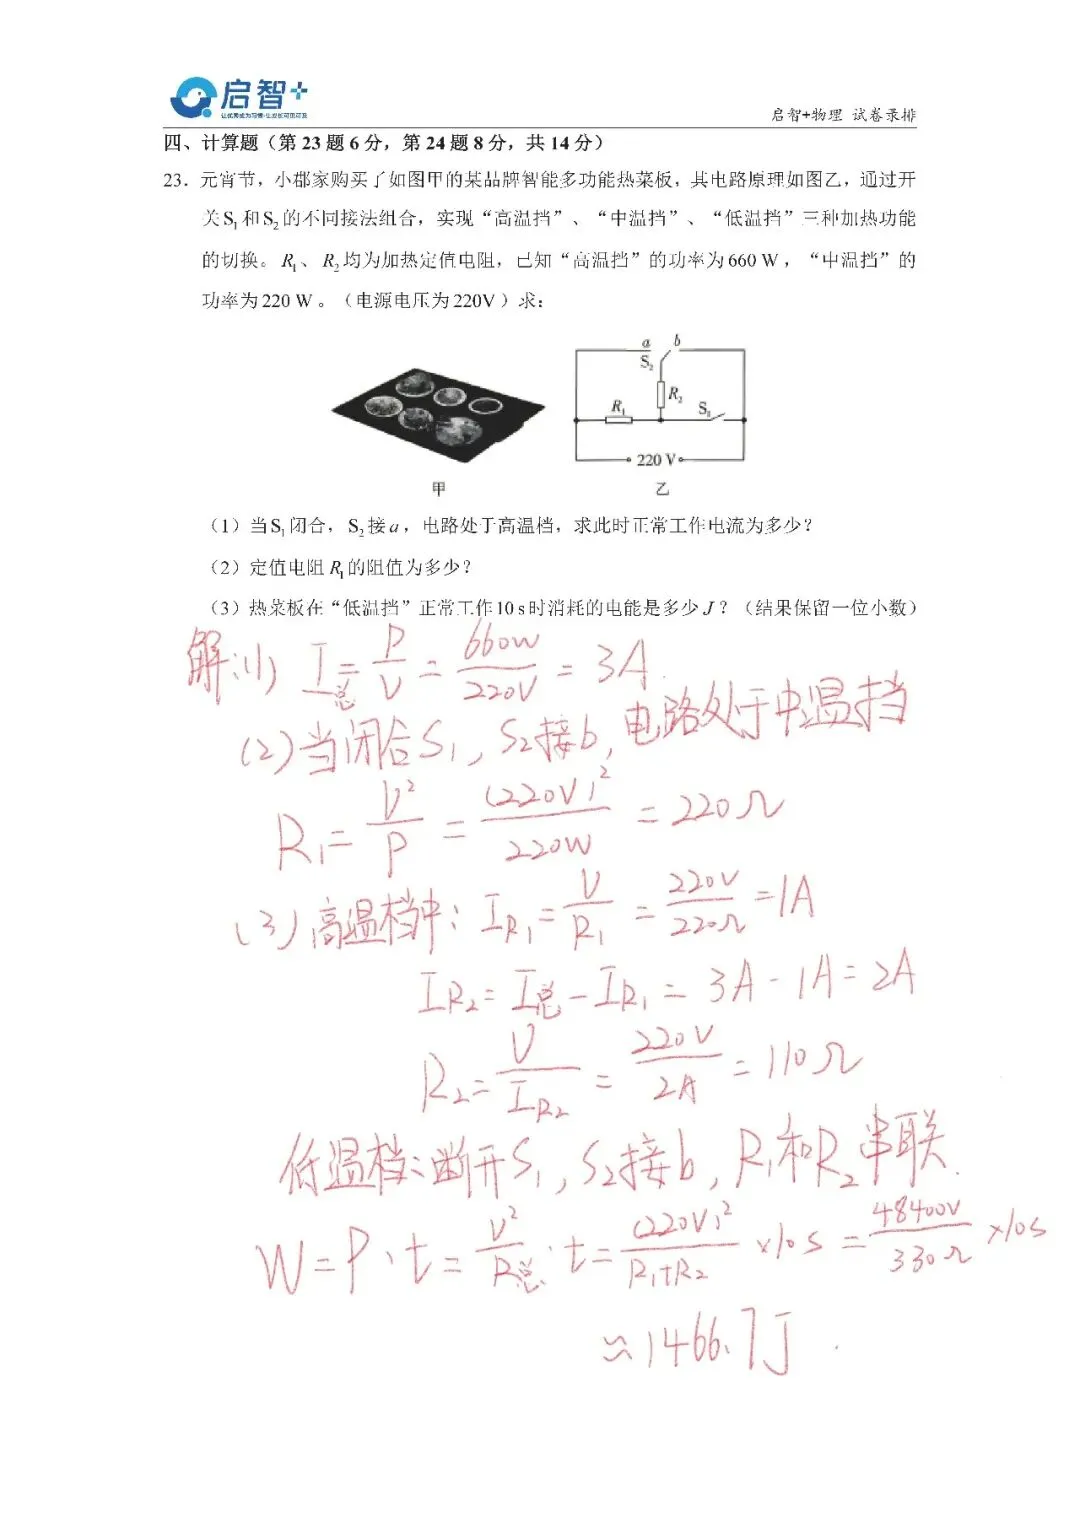 启智+
让优秀成为习惯·让成长可见可及
启智+物理 试卷录排
四、计算题（第 23 题 6 分，第 24 题 8 分，共 14 分）
23．元宵节，小郡家购买了如图甲的某品牌智能多功能热菜板，其电路原理如图乙，通过开
关S₁和S₂的不同接法组合，实现“高温挡”、“中温挡”、“低温挡”三种加热功能
的切换。R₁、R₂均为加热定值电阻，已知“高温挡”的功率为660 W，“中温挡”的
功率为220 W。（电源电压为220V）求：
a b
S₂
R₂
R₁ S₁
220 V
甲 乙
（1）当S₁闭合，S₂接a，电路处于高温档，求此时正常工作电流为多少？
（2）定值电阻R₁的阻值为多少？
（3）热菜板在“低温挡”正常工作10 s时消耗的电能是多少J？（结果保留一位小数）
解:(1) I总=P/U=660W/220V=3A.
(2)当闭合S₁,S₂接b,电路处于中温挡
R₁=U²/P=(220V)²/220W=220Ω
(3)高温档中:I_R₁=U/R₁=220V/220Ω=1A
I_R₂=I总-I_R₁=3A-1A=2A
R₂=U/I_R₂=220V/2A=110Ω
低温档:断开S₁,S₂接b,R₁和R₂串联.
W=P·t=U²/R总·t=(220V)²/R₁+R₂×10s=48400V/330Ω×10s
≈1466.7J.